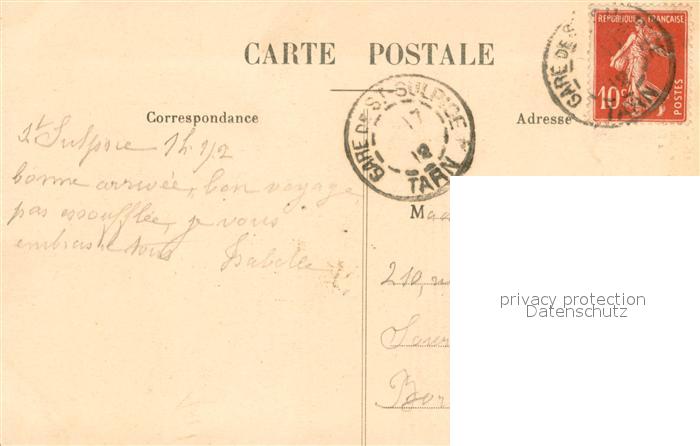 CARTE POSTALE
REPUBLIQUE FRANÇAISE
10c
POSTES
GARE DE
TARN
12
Correspondance
Adresse
GARE DE ST SULPICE
17
12
TARN
St Sulpice 1h 1/2
bonne arrivée, bon voyage,
pas essoufflée, je vous
embrasse tous
Isabelle
M
210, r
Bor
privacy protection
Datenschutz